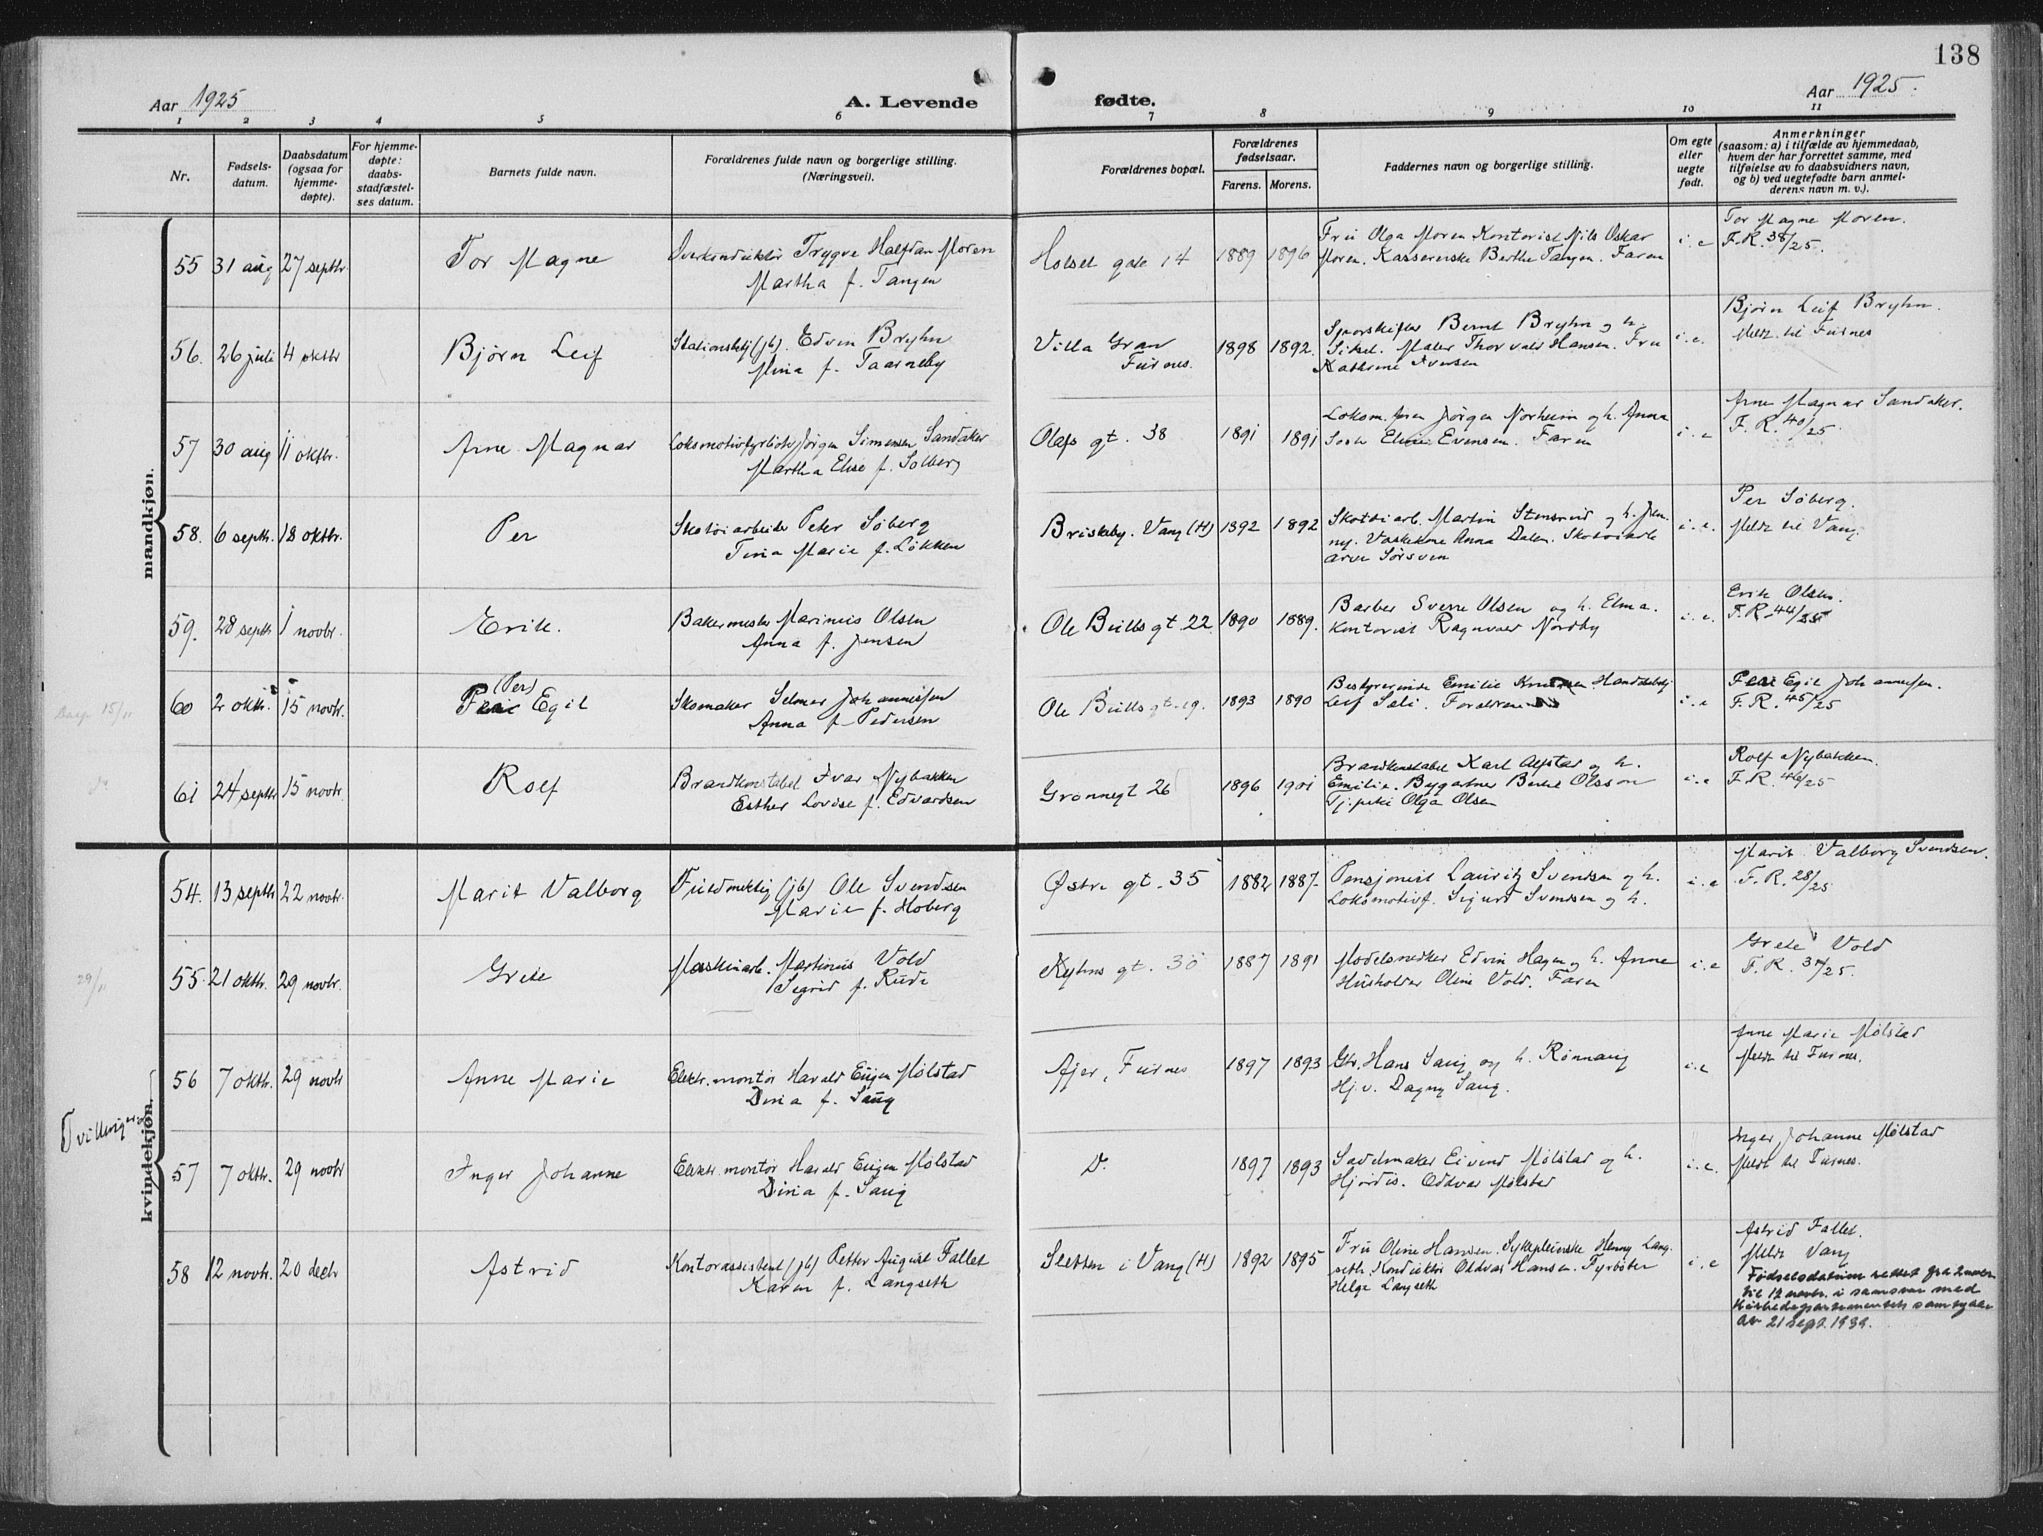 138
Aar 1925
A. Levende
fødte.
Aar 1925.
1 2 3 4 5 6 7 8 9 10 11
Nr.
Fødsels-
datum.
Daabsdatum
(ogsaa for
hjemme-
døpte).
For hjemme-
døpte:
daabs-
stadfæstel-
ses datum.
Barnets fulde navn.
Forældrenes fulde navn og borgerlige stilling.
(Næringsvei).
Forældrenes bopæl.
Forældrenes
fødselsaar.
Farens. Morens.
Faddernes navn og borgerlige stilling.
Om egte
eller
uegte
født.
Anmerkninger
(saasom: a) i tilfælde av hjemmedaab,
hvem der har forrettet samme, med
tilføielse av to daabsvidners navn,
og b) ved uegtefødte barn anmel-
derens navn m. v.).
mandkjøn.
55 31 aug 27 septbr. Tor Magne
Overkonduktør Trygve Halfdan Moren
Martha f. Tangen
Holset gate 14 1889 1896
Fru Olga Moren Kontorist Nils Oskar
Moren. Kassererske Berthe Tangen. Faren
i.e
Tor Magne Moren.
F.R. 38/25.
56. 26 juli 4 oktbr Bjørn Leif
Stationsbtj (jb). Edvin Bryhn
Mina f. Taarneby
Villa Gran
Furnes. 1898 1892.
Sporskifter Bernt Bryhn og h.
Sikel. Maler Thorvald Hansen. Fru
Kathrine Iversen
i.e.
Bjørn Leif Bryhn.
Meldt til Furnes
57 30 aug 11 oktbr. Arne Magnar
Lokomotivfyrbøter Jørgen Simensen Sandaker
Martha Elise f. Solberg
Olafs gt. 38 1891 1891
Jørgen Norheim og h. Anna
Evensen. Faren
i.e
Arne Magnar Sandaker.
F.R. 40/25.
58. 6 septb. 18 oktbr. Per
Skotøiarbeider Peter Søberg
Tina Marie f. Løkken
Briskeby. Vang (H) 1892 1892
Skotøiarb. Martin Stensrud og h. Jen-
ny. Vaskekone Anna Dalen. Skotøi
Sørsveen
i.e.
Per Søberg.
Meldt til Vang.
59. 28 septb 1 novbr. Erik.
Bakermester Marinius Olsen
Anna f. Jensen
Ole Bulls gt 22. 1890 1889.
Barber Sverre Olsen og h. Elma.
Kontorist Ragnvald Nordby
i.e.
Erik Olsen.
F.R. 44/25
15/11
60 2 oktb. 15 novbr. (Per)
Egil
Skomaker Selmer Johannessen
Anna f. Pedersen
Ole Bulls gt. 19. 1893 1890
Bestyrerinde Emilie Knudsen. Handelsbtj
Leif Sæli. Forældrene
i.e
Egil Johannessen.
F.R. 45/25
61 24 septb 15 novbr. Rolf
Brandkonstabel Ivar Nybakken
Esther Lovise f. Edvardsen
Grønnegt 26 1896 1901
Brandkonstabel Karl Alfstad og h.
Emilie. Olsson
Tj.pike Olga Olsen
i.e
Rolf Nybakken.
F.R. 46/25
kvindekjøn.
54. 13 septb 22 novbr. Marit Valborg
Fuldmektig (jb) Ole Svendsen
Marie f. Hoberg
Østre gt. 35 1882 1887
Pensjonist Lauritz Svendsen og h.
Lokomotivf. Sigurd Svendsen og h.
i.e
Marit Valborg Svendsen.
F.R. 28/25
29/11
55. 21 oktbr. 29 novbr. Grete
Maskinarb. Martinus Vold
Sigrid f. Rude
Kyhns gt. 30 1887 1891
Modelsnedker Edvin Hagen og h. Anne
Husholder Oline Vold. Faren
i.e
Grete Vold
F.R. 37/25.
56 7 oktbr. 29 novbr Anne Marie
Elektr. montør Harald Eugen Mølstad
Dina f. Saug
Ajer, Furnes 1897 1893
Gbr. Hans Saug og h. Rønnaug
Hj.v. Dagny Saug.
i.e
Anne Marie Mølstad
Meldt til Furnes.
Tvillinger
57 7 oktbr. 29 novbr Inger Johanne
Elektr. montør Harald Eugen Mølstad
Dina f. Saug
D. 1897 1893
Sadelmaker Eivind Mølstad og h.
Hjørdis. Oddvar Mølstad
i.e.
Inger Johanne Mølstad
Meldt til Furnes.
58 12 novbr. 20 decbr Astrid
Kontorassistent (jb) Petter August Fallet
Karen f. Langseth
Sletten i Vang (H) 1892 1895
Fru Oline Hansen. Sykepleierske Henny Lang-
seth. Konduktør Oddvar Hansen. Fyrbøter
Helge Langseth
i.e
Astrid Fallet.
Meldt Vang
Fødselsdatum rettet fra 2 novbr.
til 12 novbr. i samsvar med
Kirkedepartementets samtykke
av 21 sept. 1939.